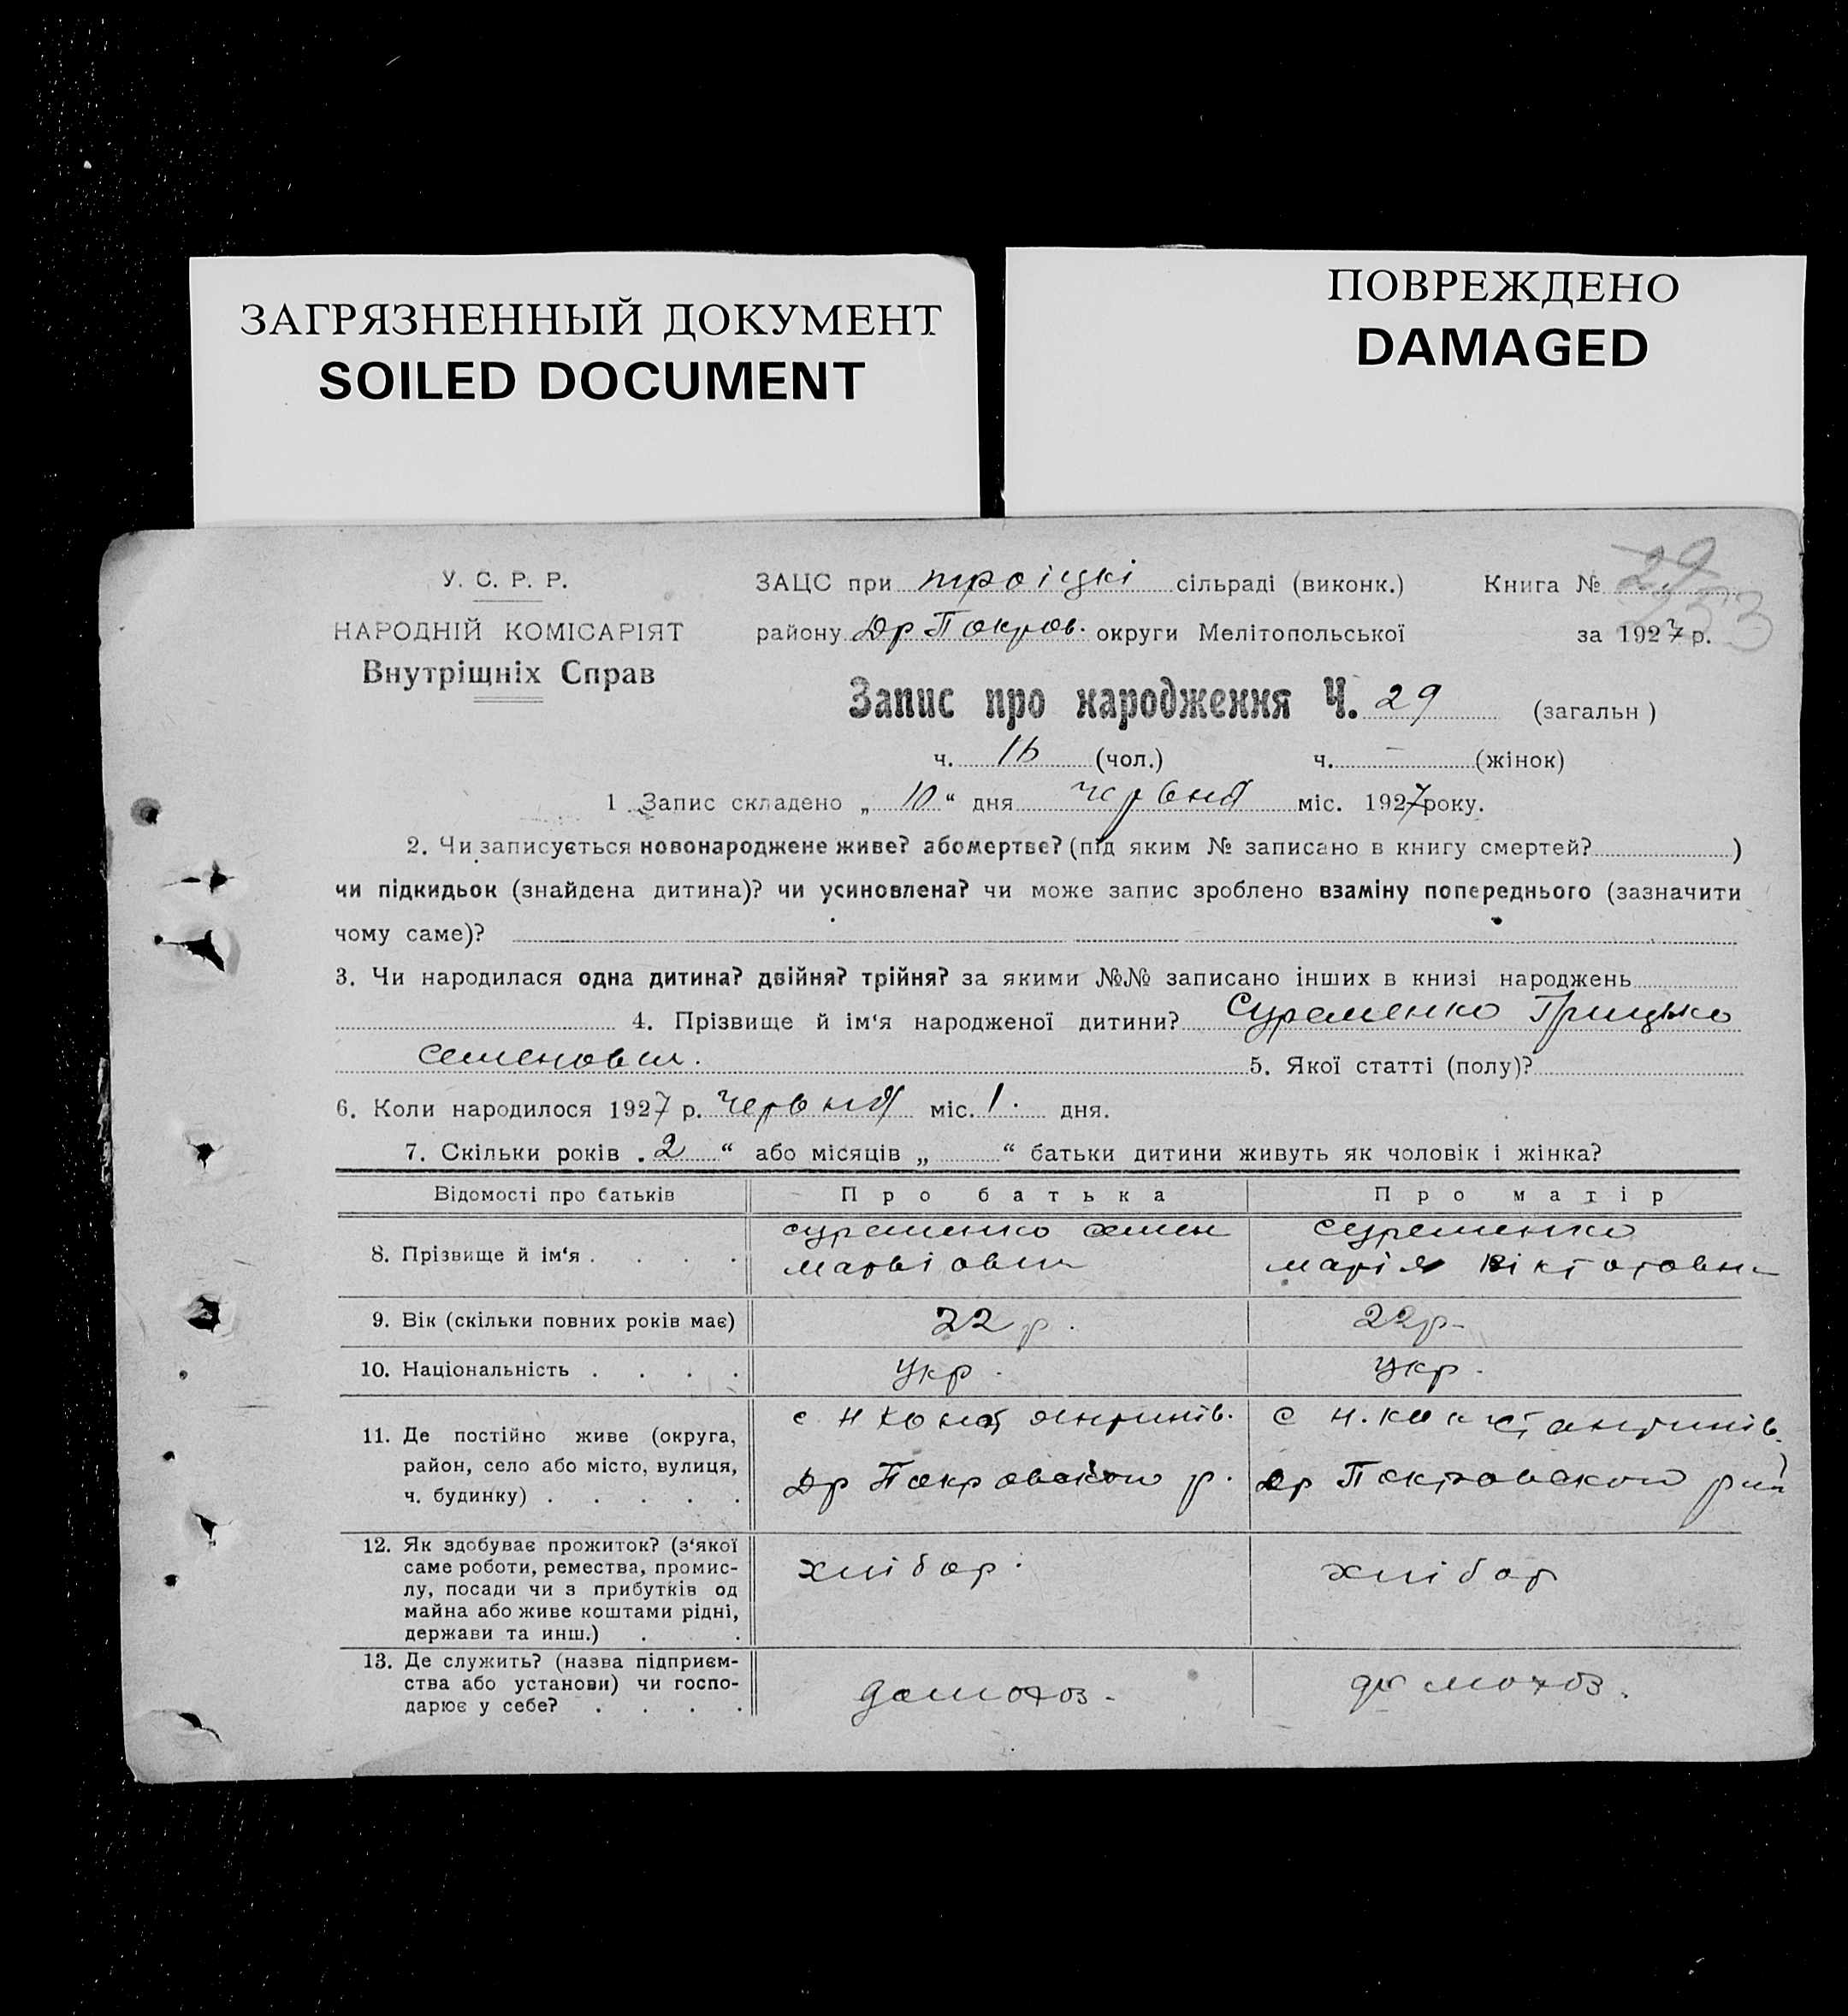 ЗАГРЯЗНЕННЫЙ ДОКУМЕНТ
SOILED DOCUMENT
ПОВРЕЖДЕНО
DAMAGED
У. С. Р. Р.
НАРОДНІЙ КОМІСАРІЯТ
Внутріщніх Справ
ЗАЦС при троіцкі сільраді (виконк.) Книга № 29
253
району Др Покров. округи Мелітопольської за 1927 р.
Запис про народження Ч. 29 (загальн)
ч. 16 (чол.) ч. — (жінок)
1 Запис складено „ 10 “ дня червня міс. 1927 року.
2. Чи записується новонароджене живе? або мертве? (під яким № записано в книгу смертей? )
чи підкидьок (знайдена дитина)? чи усиновлена? чи може запис зроблено взаміну попереднього (зазначити
чому саме)?
3. Чи народилася одна дитина? двійня? трійня? за якими №№ записано інших в книзі народжень
4. Прізвище й ім‘я народженої дитини? Суременко Грицько
Семенович. 5. Якої статті (полу)?
6. Коли народилося 1927 р. червня міс. 1. дня.
7. Скільки років „ 2 “ або місяців „ “ батьки дитини живуть як чоловік і жінка?
Відомості про батьків Про батька Про матір
8. Прізвище й ім‘я . . . . суременко семен суременко
матвіович марія Вікторовна
9. Вік (скільки повних років має) 22 р. 22 р-
10. Національність . . . . укр. укр.
11. Де постійно живе (округа, с Н Константинів. с Н. Константинів.
район, село або місто, вулиця,
ч. будинку) . . . . . Др Покровской р. Др Покровской
12. Як здобуває прожиток? (з‘якої
саме роботи, ремества, промис- хлібор. хлібор
лу, посади чи з прибутків од
майна або живе коштами рідні,
держави та инш.) . .
13. Де служить? (назва підприєм-
ства або установи) чи госпо- домохоз- домохоз.
дарює у себе? . . . .